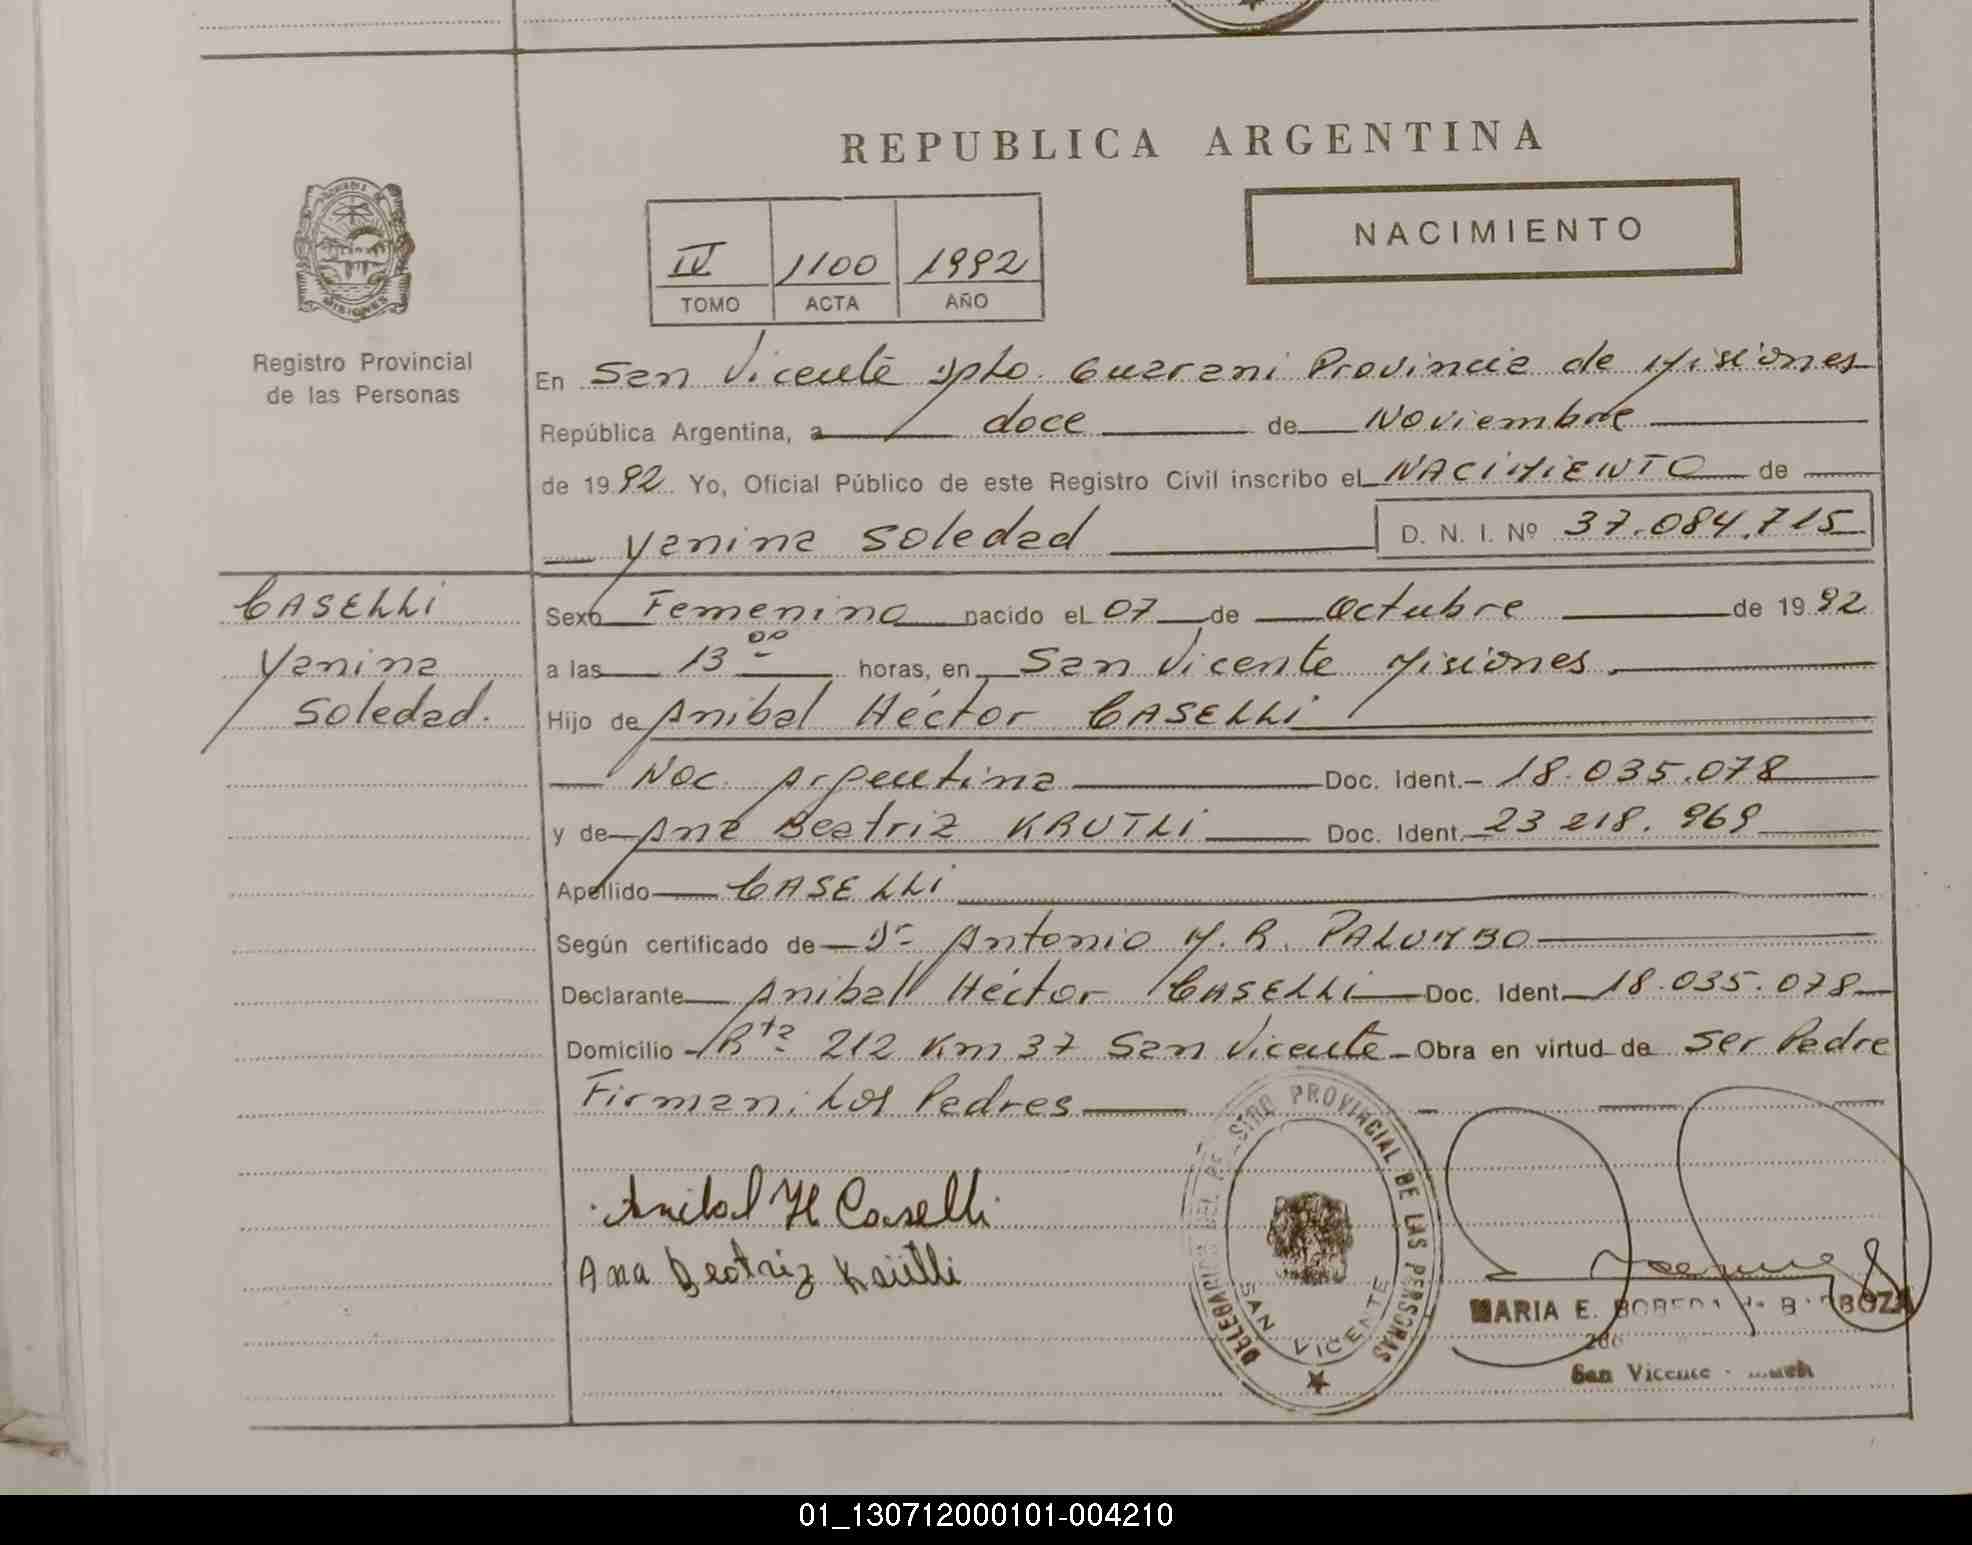 REPUBLICA ARGENTINA
NACIMIENTO
IV 1100 1992
TOMO ACTA AÑO
MISIONES
Registro Provincial
de las Personas
En San Vicente Dpto. Guarani Provincia de Misiones
República Argentina, a doce de Noviembre
de 1992 Yo, Oficial Público de este Registro Civil inscribo el NACIMIENTO de
Yanina Soledad D. N. I. Nº 37.084.715
CASELLI
Yanina
Soledad.
Sexo Femenino nacido el 07 de Octubre de 1992
a las 13 00 horas, en San Vicente Misiones
Hijo de Anibal Héctor CASELLI
Nac. Argentina Doc. Ident. 18.035.078
y de Ana Beatriz KRUTLI Doc. Ident. 23 218. 969
Apellido CASELLI
Según certificado de Dr Antonio M. R. PALUMBO
Declarante Anibal Héctor CASELLI Doc. Ident. 18.035.078
Domicilio Rta 212 Km 37 San Vicente Obra en virtud de ser Padre
Firman: Los Padres
Anibal H Caselli
Ana Beatriz Krütli
DELEGACION DEL REGISTRO PROVINCIAL DE LAS PERSONAS
SAN VICENTE
MARIA E. BOBEDA de BARBOZA
San Vicente
01_130712000101-004210